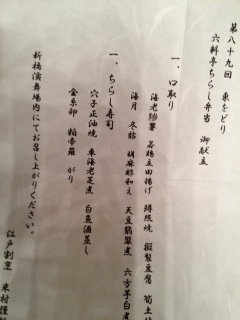 第八十九回 東をどり
六料亭ちらし弁当 御献立
一、口取り
海老
若鶏立田揚げ
擬製豆腐
海月 冬菇 胡麻酢和え 天豆翡翠煮 六方芋白煮
一、ちらし寿司
穴子正油焼 車海老芝煮 白魚酒蒸し
金糸卵
がり
新橋演舞場内にてお召し上がりください。
江戸割烹 米村